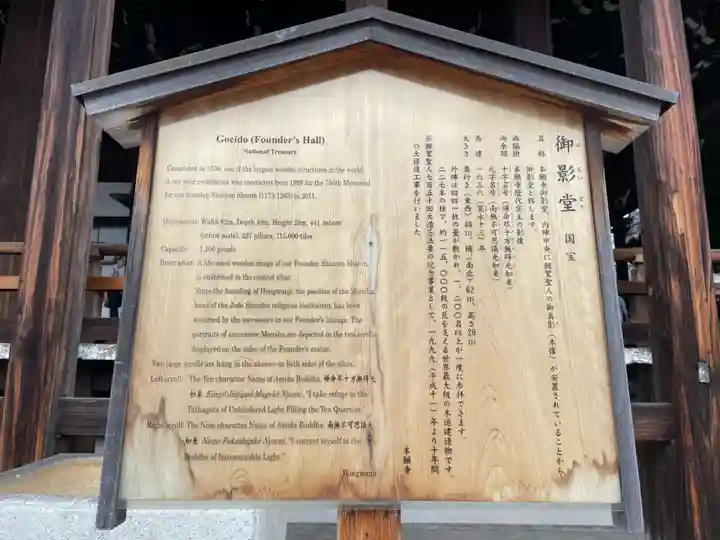 Goeido (Founder's Hall)
National Treasure
Completed in 1636, one of the largest wooden structures in the world.
A ten year restoration was conducted from 1999 for the 750th Memorial
for our founder, Shinran Shonin (1173-1263) in 2011.
Dimensions: Width 62m, Depth 48m, Height 29m, 441 tatami
(straw mats), 227 pillars, 115,000 tiles
Capacity: 1,200 people
Inner altar: A life-sized wooden image of our Founder, Shinran Shonin,
is enshrined in the central altar.
Since the founding of Hongwanji, the position of the Monshu,
head of the Jodo Shinshu religious institution, has been
assumed by the successors in our Founder's lineage. The
portraits of successive Monshu are depicted in the two scrolls
displayed on the sides of the Founder's statue.
Two large scrolls are hung in the alcoves on both sides of the altar.
Left scroll: The Ten character Name of Amida Buddha, 帰命尽十方無碍光
如来 Kimyo Jinjippo Mugeko Nyorai, "I take refuge in the
Tathagata of Unhindered Light Filling the Ten Quarters."
Right scroll: The Nine character Name of Amida Buddha, 南無不可思議光
如来 Namo Fukashigiko Nyorai, "I entrust myself to the
Buddha of Inconceivable Light."
Hongwanji
御影堂 国宝
ご えい どう
名称 本願寺御影堂。内陣中央に親鸞聖人の御真影(木像)が安置されていることから、
御影堂と称します。
両脇壇 本願寺歴代宗主の影像
両余間 十字名号(帰命尽十方無碍光如来)
九字名号(南無不可思議光如来)
再建 一六三六(寛永十三)年
大きさ 奥行き(東西)48m、横(南北)62m、高さ29m
外陣は四四一枚の畳が敷かれ、一、二〇〇名以上が一度に参拝できます。
二二七本の柱で、約一一五、〇〇〇枚の瓦を支える世界最大級の木造建造物です。
※親鸞聖人七百五十回大遠忌法要の記念事業として、一九九九(平成十一)年より十年間
の大修復工事を行いました。
本願寺